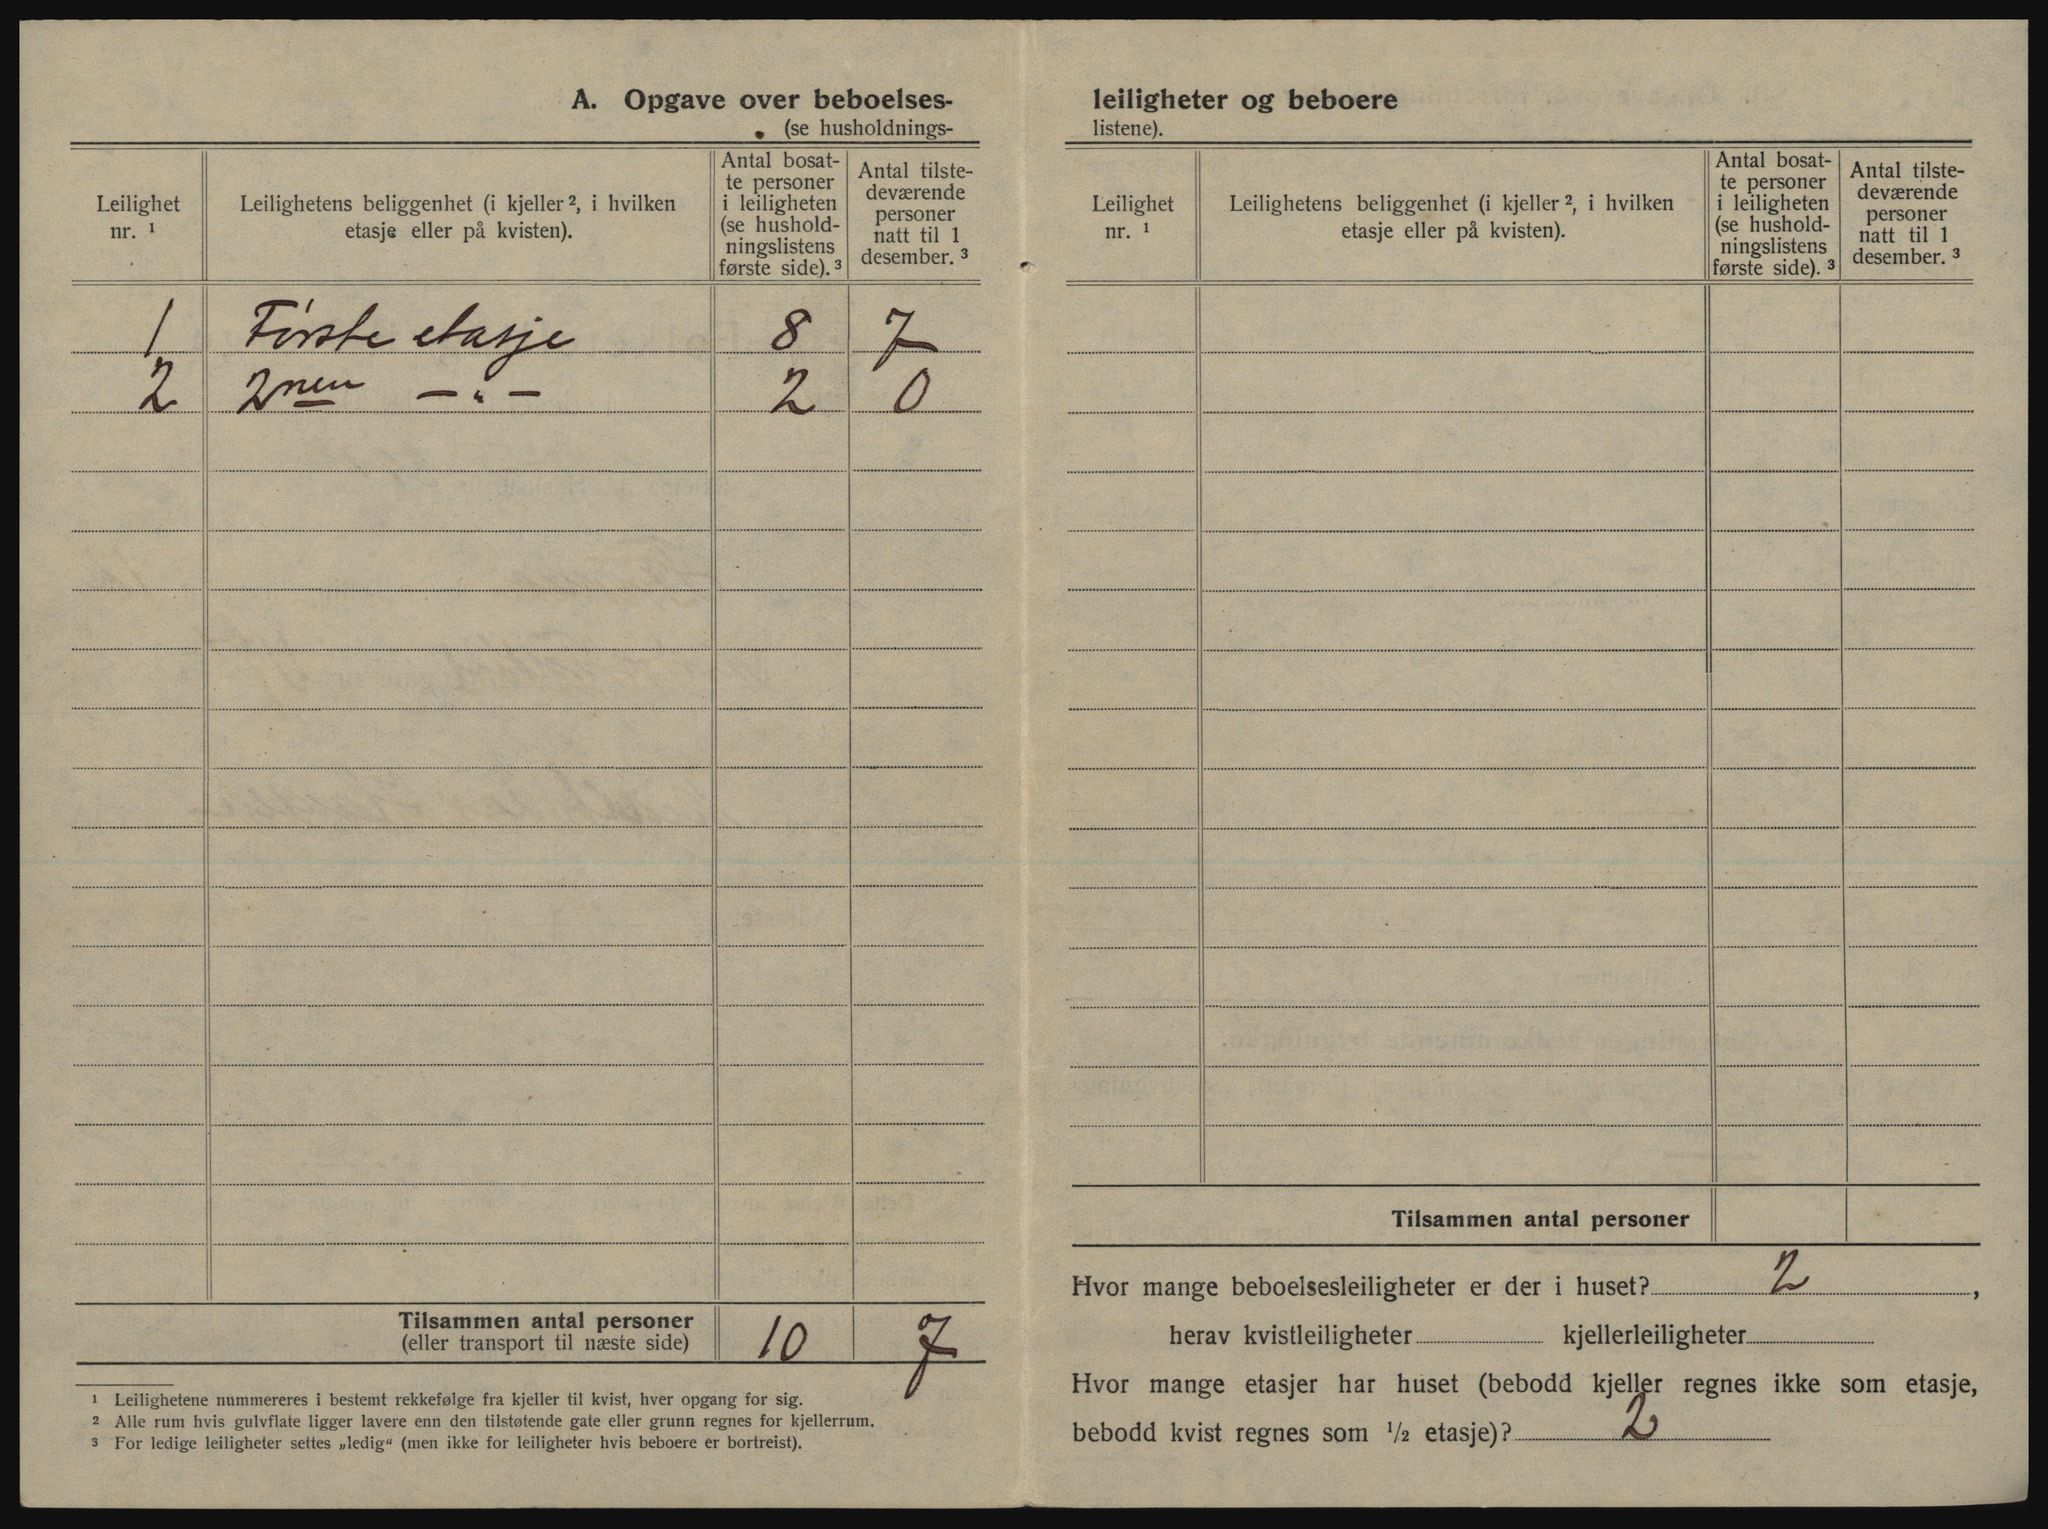 A. Opgave over beboelses-
(se husholdnings-
Leilighet
nr. 1
Leilighetens beliggenhet (i kjeller 2, i hvilken
etasje eller på kvisten).
Antal bosat-
te personer
i leiligheten
(se hushold-
ningslistens
første side). 3
Antal tilste-
deværende
personer
natt til 1
desember. 3
1 Første etasje 8 7
2 2nen — „ — 2 0
Tilsammen antal personer
(eller transport til næste side)
10 7
1 Leilighetene nummereres i bestemt rekkefølge fra kjeller til kvist, hver opgang for sig.
2 Alle rum hvis gulvflate ligger lavere enn den tilstøtende gate eller grunn regnes for kjellerrum.
3 For ledige leiligheter settes „ledig“ (men ikke for leiligheter hvis beboere er bortreist).
leiligheter og beboere
listene).
Leilighet
nr. 1
Leilighetens beliggenhet (i kjeller 2, i hvilken
etasje eller på kvisten).
Antal bosat-
te personer
i leiligheten
(se hushold-
ningslistens
første side). 3
Antal tilste-
deværende
personer
natt til 1
desember. 3
Tilsammen antal personer
Hvor mange beboelsesleiligheter er der i huset? 2,
herav kvistleiligheter kjellerleiligheter
Hvor mange etasjer har huset (bebodd kjeller regnes ikke som etasje,
bebodd kvist regnes som 1/2 etasje)? 2